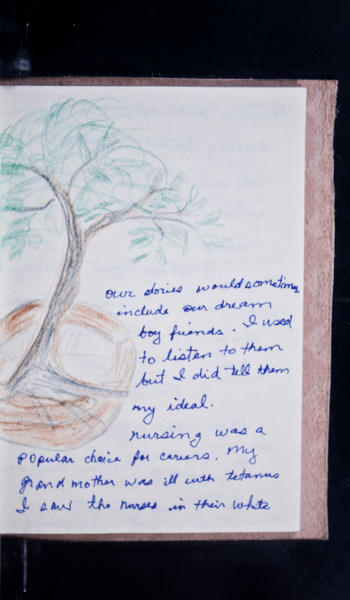 our stories would sometimes
include our dream
boy friends. I used
to listen to them
but I did tell them
my ideal.
nursing was a
popular choice for careers. My
grand mother was ill with tetanus
I saw the nurses in their white